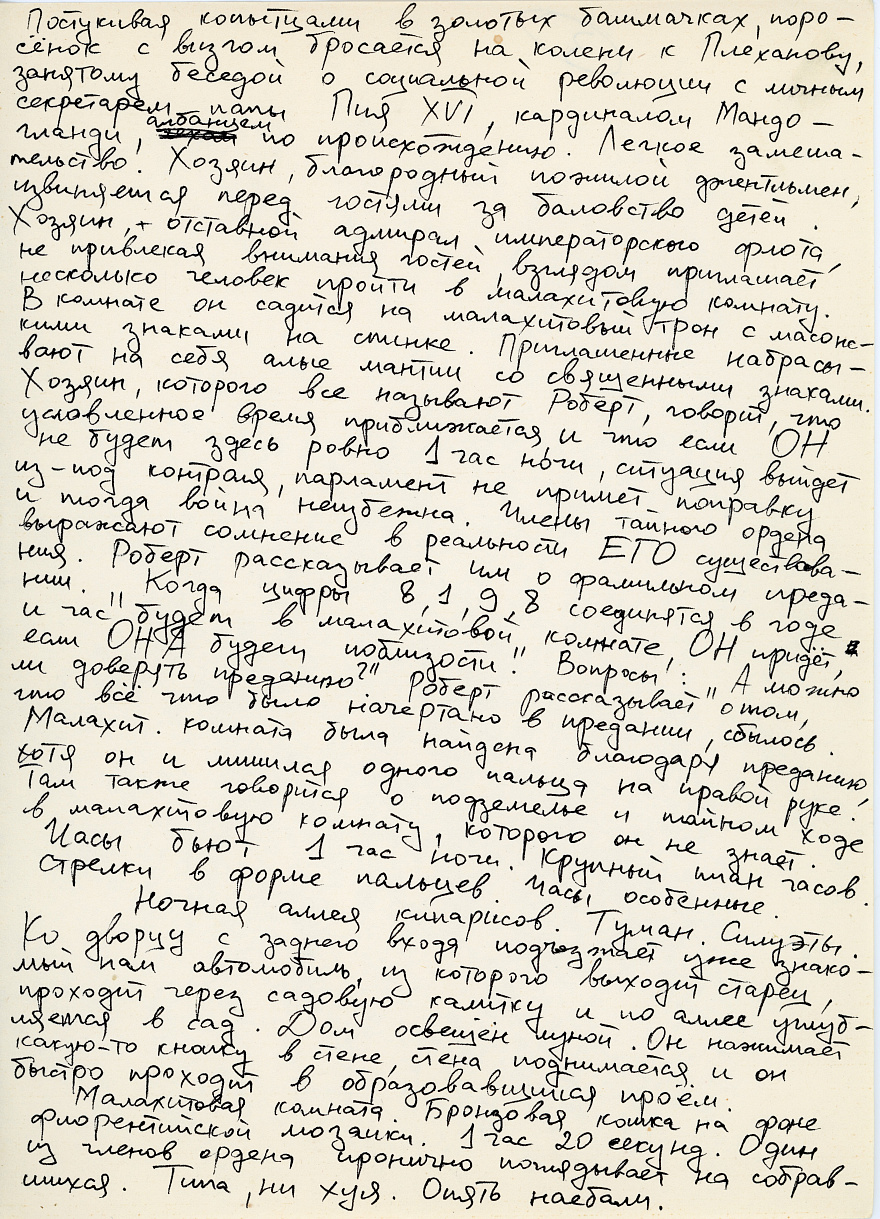 Постукивая копытцами в золотых башмачках, поро-
сёнок с визгом бросается на колени к Плеханову,
занятому беседой о социальной революции с личным
секретарём папы Пия XVI, кардиналом Мандо-
гланди, албанцем по происхождению. Легкое замеша-
тельство. Хозяин, благородный пожилой джентльмен,
извиняется перед гостями за баловство детей.
Хозяин, отставной адмирал императорского флота,
не привлекая внимания гостей, взглядом приглашает
несколько человек пройти в малахитовую комнату.
В комнате он садится на малахитовый трон с масонс-
кими знаками на спинке. Приглашенные набрасы-
вают на себя алые мантии со священными знаками.
Хозяин, которого все называют Роберт, говорит, что
условленное время приближается и что если ОН
не будет здесь ровно 1 час ночи, ситуация выйдет
из-под контроля, парламент не примет поправку
и тогда война неизбежна. Члены тайного ордена
выражают сомнение в реальности ЕГО существова-
ния. Роберт рассказывает им о фамильном преда-
нии. „Когда цифры 8, 1, 9, 8 соединятся в годе
и час будет в малахитовой комнате, ОН придёт,
если ОНА будет поблизости". Вопросы: „А можно
ли доверять преданию?" Роберт рассказывает о том,
что всё что было начертано в предании, сбылось.
Малахит. комната была найдена благодаря преданию,
хотя он и лишился одного пальца на правой руке.
Там также говорится о подземелье и тайном ходе
в малахитовую комнату, которого он не знает.
Часы бьют 1 час ночи. Крупный план часов.
Стрелки в форме пальцев. Часы особенные.
Ночная аллея кипарисов. Туман. Силуэты.
Ко дворцу с заднего входа подъезжает уже знако-
мый нам автомобиль, из которого выходит старец,
проходит через садовую калитку и по аллее углуб-
ляется в сад. Дом освещён луной. Он нажимает
какую-то кнопку в стене, стена поднимается и он
быстро проходит в образовавшийся проём.
Малахитовая комната. Бронзовая кошка на фоне
флорентийской мозаики. 1 час 20 секунд. Один
из членов ордена иронично поглядывает на собрав-
шихся. Типа, ни хуя. Опять наебали.